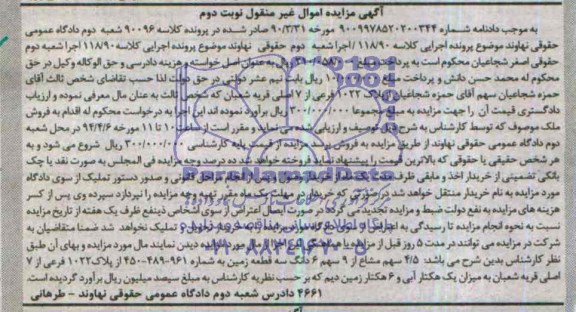 آگهی مزایده اموال غیر منقول نوبت دوم
به موجب دادنامه شماره ۹۰۰۹۹۷۸۵۲۰۲۰۰۳۴۴ مورخه ۹۰/۳/۳۱ صادر شده در پرونده کلاسه ۹۰۰۹۶ شعبه دوم دادگاه عمومی
حقوقی نهاوند موضوع پرونده اجرایی کلاسه ۱۱۸/۹۰ اجرا شعبه دوم حقوقی نهاوند موضوع پرونده اجرایی کلاسه ۱۱۸/۹۰ اجرا شعبه دوم
حقوقی اصغر شجاعیان محکوم است به پرداخت ریال به عنوان اصل خواسته و هزینه دادرسی و حق الوکاله وکیل در حق
محکوم له محمد حسن دانش و پرداخت مبلغ ریال بابت نیم عشر دولتی در حق دولت لذا حسب تقاضای شخص ثالث آقای
حمزه شجاعیان سهم آقای حمزه شجاعیان از پلاک ۱۰۲۲ فرعی از ۷ اصلی قریه شعبان که شخص ثالث به عنان مال معرفی نموده و ارزیاب
دادگستری قیمت آن را جهت مزایده به مبلغ مجموعا ۳۰۰/۰۰۰/۰۰۰ ریال برآورد نموده اند این اجرا به درخواست محکوم له اقدام به فروش
ملک موصوف که توسط کارشناس به شرح ذیل توصیف و ارزیابی شده می نماید و مقرر است از ساعت ۱۰ تا ۱۱ مورخه ۹۴/۴/۶ در محل شعبه
دوم دادگاه عمومی حقوقی نهاوند از طریق مزایده به فروش برسد مزایده از قیمت پایه کارشناسی ۳۰۰/۰۰۰/۰۰۰ ریال شروع می شود و به
هر شخص حقیقی یا حقوقی که بالاترین قیمت را پیشنهاد نماید فروخته خواهد شد ده درصد وجه مزایده فی المجلس به صورت نقد یا چک
بانکی تضمینی از خریدار اخذ و مابقی ظرف و صدور دستور تملیک از سوی دادگاه
مورد مزایده به نام خریدار منتقل خواهد شد در صورتی که خریدار در مهلت یک ماه مقرر بقیه وجه مزایده را نپردازد سپرده وی پس از کسر
هزینه های مزایده به نفع دولت ضبط و مزایده تجدید می گردد در صورت ایصال اعتراض از سوی اشخاص ذینفع ظرف یک هفته از تاریخ مزایده
نسبت به نحوه انجام مزایده تا رسیدگی به تملیک نخواهد شد ضمنا متقاضیان به
شرکت در مزایده می توانند در مدت ۵ روز قبل از مزایده مورد مزایده دیدن نمایند مال مورد مزایده و بهای آن طبق
نظر کارشناس بدین شرح می باشد ۴/۵ سهم مشاع از ۹ سهم ۶ دانگ سه قطعه زمین به شماره ۹۶۱-۴۸۹-۴۵۰ از پلاک ۱۰۲۲ فرعی از ۷
اصلی قریه شعبان به میزان یک هکتار آبی و ۶ هکتار زمین دیم که بر حسب نظریه کارشناس به مبلغ سیصد میلیون ریال برآورد گردیده است.
۴۶۶۱ دادرس شعبه دوم دادگاه عمومی حقوقی نهاوند - طرهانی
ParsNamadData
۰۲۱-۸۸۳۴۹۶۷۰-۵